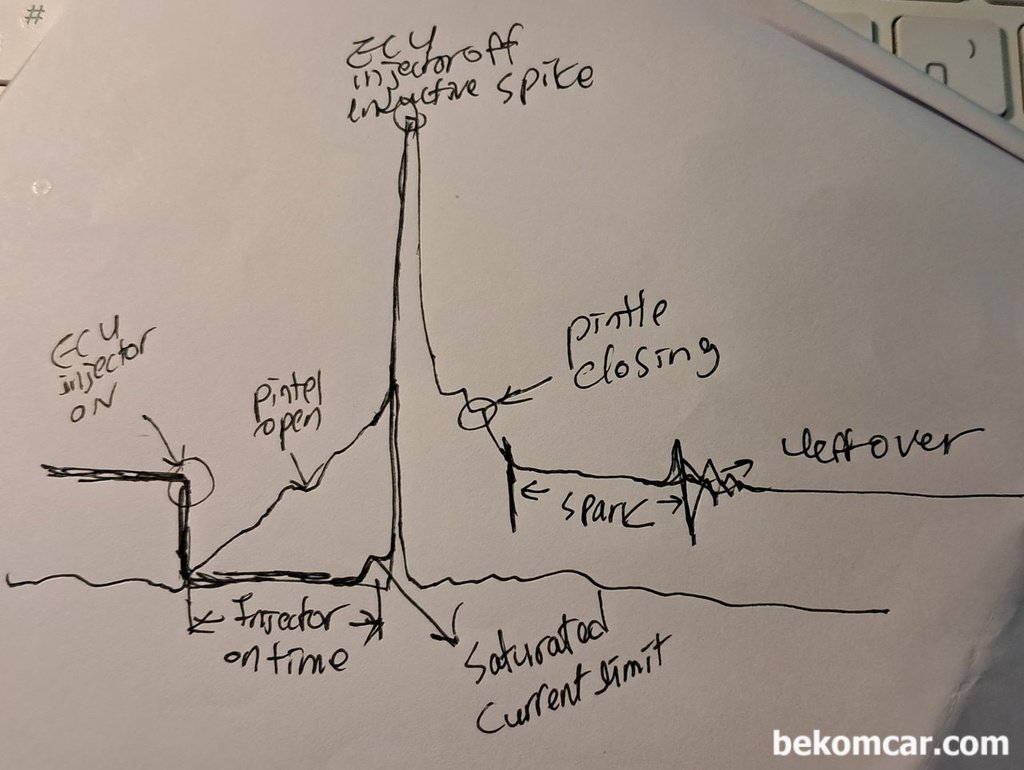 #
ECU
injector off
inductive spike
ECU
injector
ON
pintel
open
pintle
closing
leftover
spark
Injector
on time
Saturated
Current limit
bekomcar.com